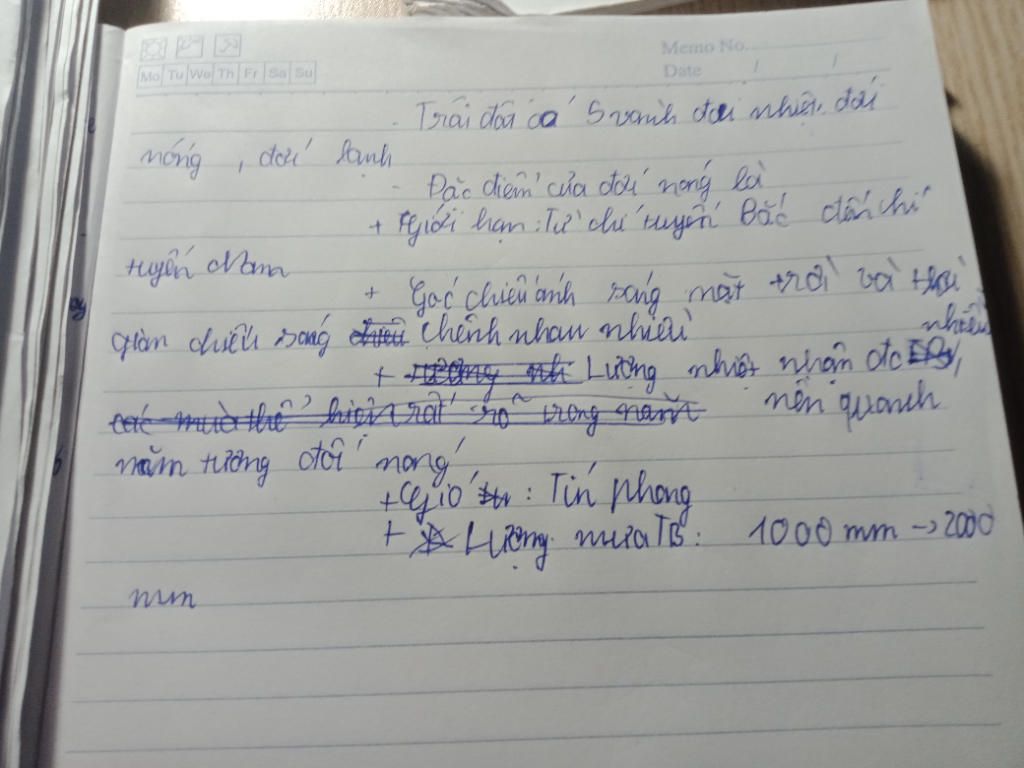 Memo No.
Mo Tu We Th Fr Sa Su
Date / /
- Trái đất có 5 vành đai nhiệt. đới
nóng, đới lạnh
- Đặc điểm của đới nóng là
+ Giới hạn: Từ chí tuyến Bắc đến chí
tuyến Nam
+ Góc chiếu ánh sáng mặt trời và thời
gian chiếu sáng chênh nhau nhiều
+ Lượng nhiệt nhận đc nhiều,
các mùa thể hiện rất rõ trong năm nên quanh
năm tương đối nóng
+ Gió : Tín phong
+ Lượng mưa TB: 1000 mm → 2000
mm